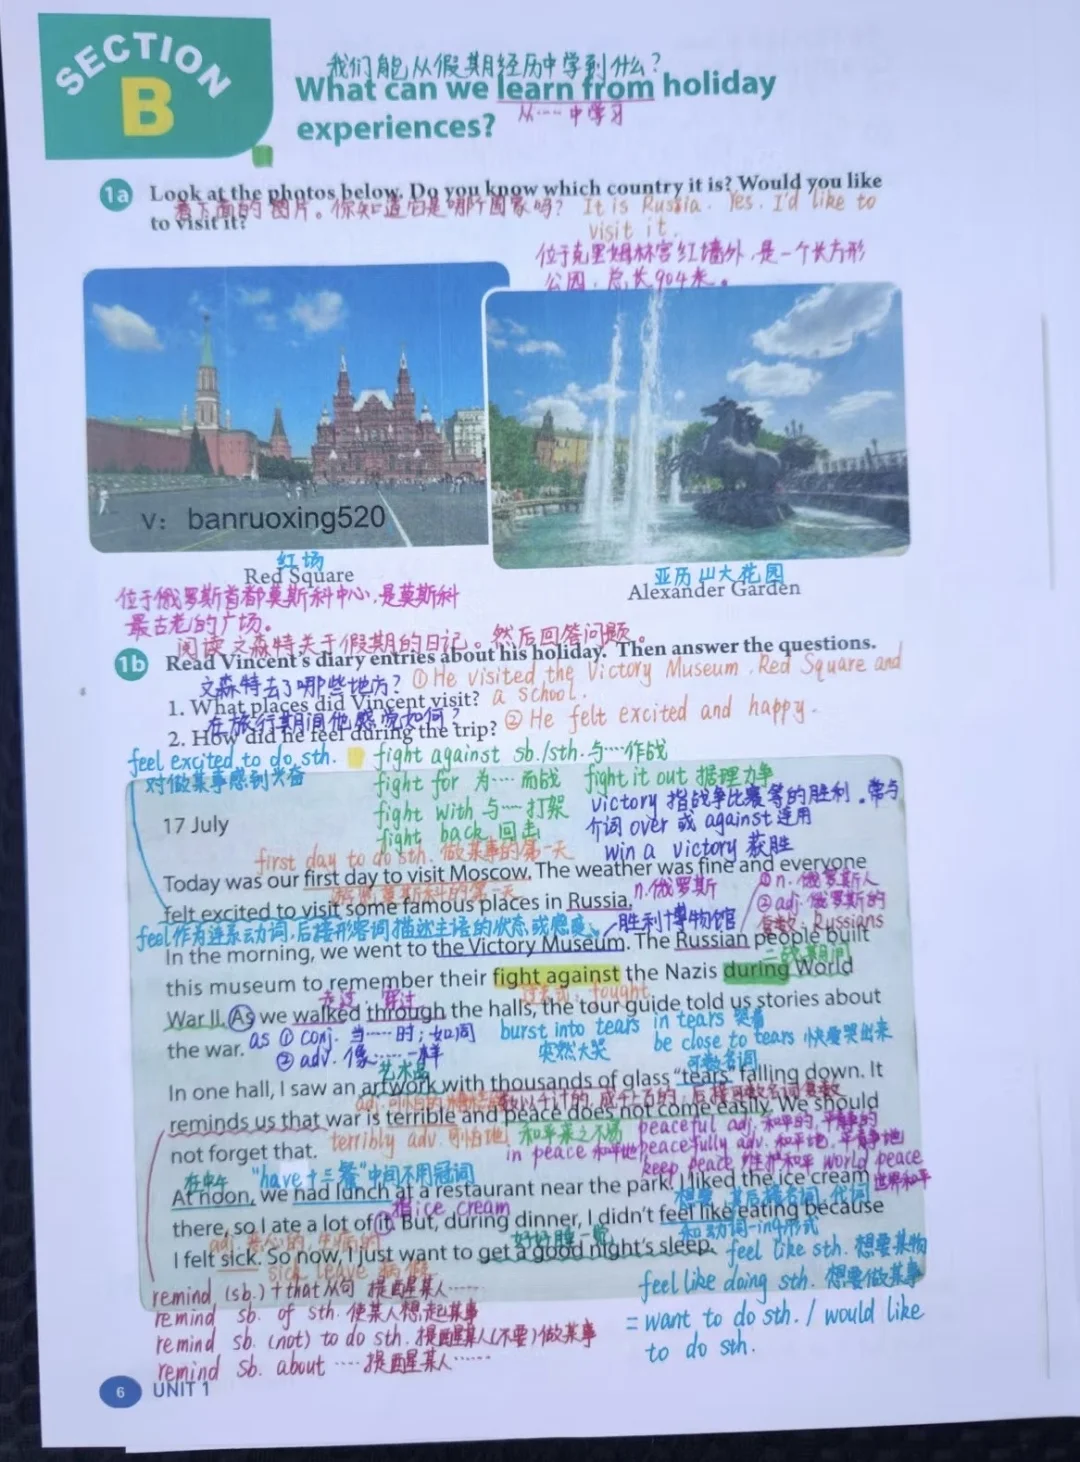 SECTION
B
我们能从假期经历中学到什么?
What can we learn from holiday
experiences?
从……中学习
1a Look at the photos below. Do you know which country it is? Would you like
看下面的图片。你知道它是哪个国家吗? It is Russia. Yes. I'd like to
to visit it?
visit it.
位于克里姆林宫红墙外,是一个长方形
公园,总长904米。
V: banruoxing520
红场
Red Square
亚历山大花园
Alexander Garden
位于俄罗斯首都莫斯科中心,是莫斯科
最古老的广场。
阅读文森特关于假期的日记。然后回答问题。
1b Read Vincent's diary entries about his holiday. Then answer the questions.
文森特去了哪些地方? ①He visited the Victory Museum, Red Square and
1. What places did Vincent visit? a school.
在旅行期间他感觉如何?
2. How did he feel during the trip? ②He felt excited and happy.
feel excited to do sth.
对做某事感到兴奋
fight against sb./sth. 与……作战
fight for 为……而战 fight it out 据理力争
fight with 与……打架
fight back 回击
victory 指战争比赛等的胜利,常与
介词 over 或 against 连用
win a victory 获胜
17 July
first day to do sth. 做某事的第一天
Today was our first day to visit Moscow. The weather was fine and everyone
游览莫斯科的第一天
n.俄罗斯
①n.俄罗斯人
②adj.俄罗斯的
复数: Russians
felt excited to visit some famous places in Russia.
feel作为连系动词,后接形容词描述主语的状态或感觉
胜利博物馆
In the morning, we went to the Victory Museum. The Russian people built
二战期间
this museum to remember their fight against the Nazis during World
走过 穿过
过去式: fought
War II. As we walked through the halls, the tour guide told us stories about
the war.
as ① conj. 当……时;如同
② adv. 像……一样
burst into tears
突然大哭
in tears 哭着
be close to tears 快要哭出来
艺术品
可数名词
In one hall, I saw an artwork with thousands of glass "tears" falling down. It
数以千计的,成千上百的,后接可数名词复数
reminds us that war is terrible and peace does not come easily. We should
not forget that.
terribly adv. 可怕地
和平来之不易
peaceful adj. 和平的,平静的
in peace 和平地
peacefully adv. 和平地,平静地
keep peace 维护和平 world peace
世界和平
在中午 "have+三餐"中间不用冠词
At noon, we had lunch at a restaurant near the park. I liked the ice cream
指ice cream
想要,其后接名词,代词
和动词-ing形式
there, so I ate a lot of it. But, during dinner, I didn't feel like eating because
好好睡一觉
I felt sick. So now, I just want to get a good night's sleep.
sick leave 病假
feel like sth. 想要某物
feel like doing sth. 想要做某事
= want to do sth. / would like
to do sth.
remind (sb.) + that从句 提醒某人……
remind sb. of sth. 使某人想起某事
remind sb. (not) to do sth. 提醒某人(不要)做某事
remind sb. about …… 提醒某人……
6 UNIT 1